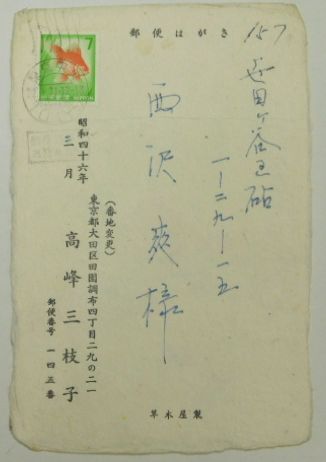 郵便はがき
157
世田ヶ谷区砧
一ー二九ー一五
西沢爽様
7
NIPPON
(番地変更)
東京都大田区田園調布四丁目二九の二一
昭和四十六年
三月
高峰三枝子
郵便番号 一四五番
草木屋製